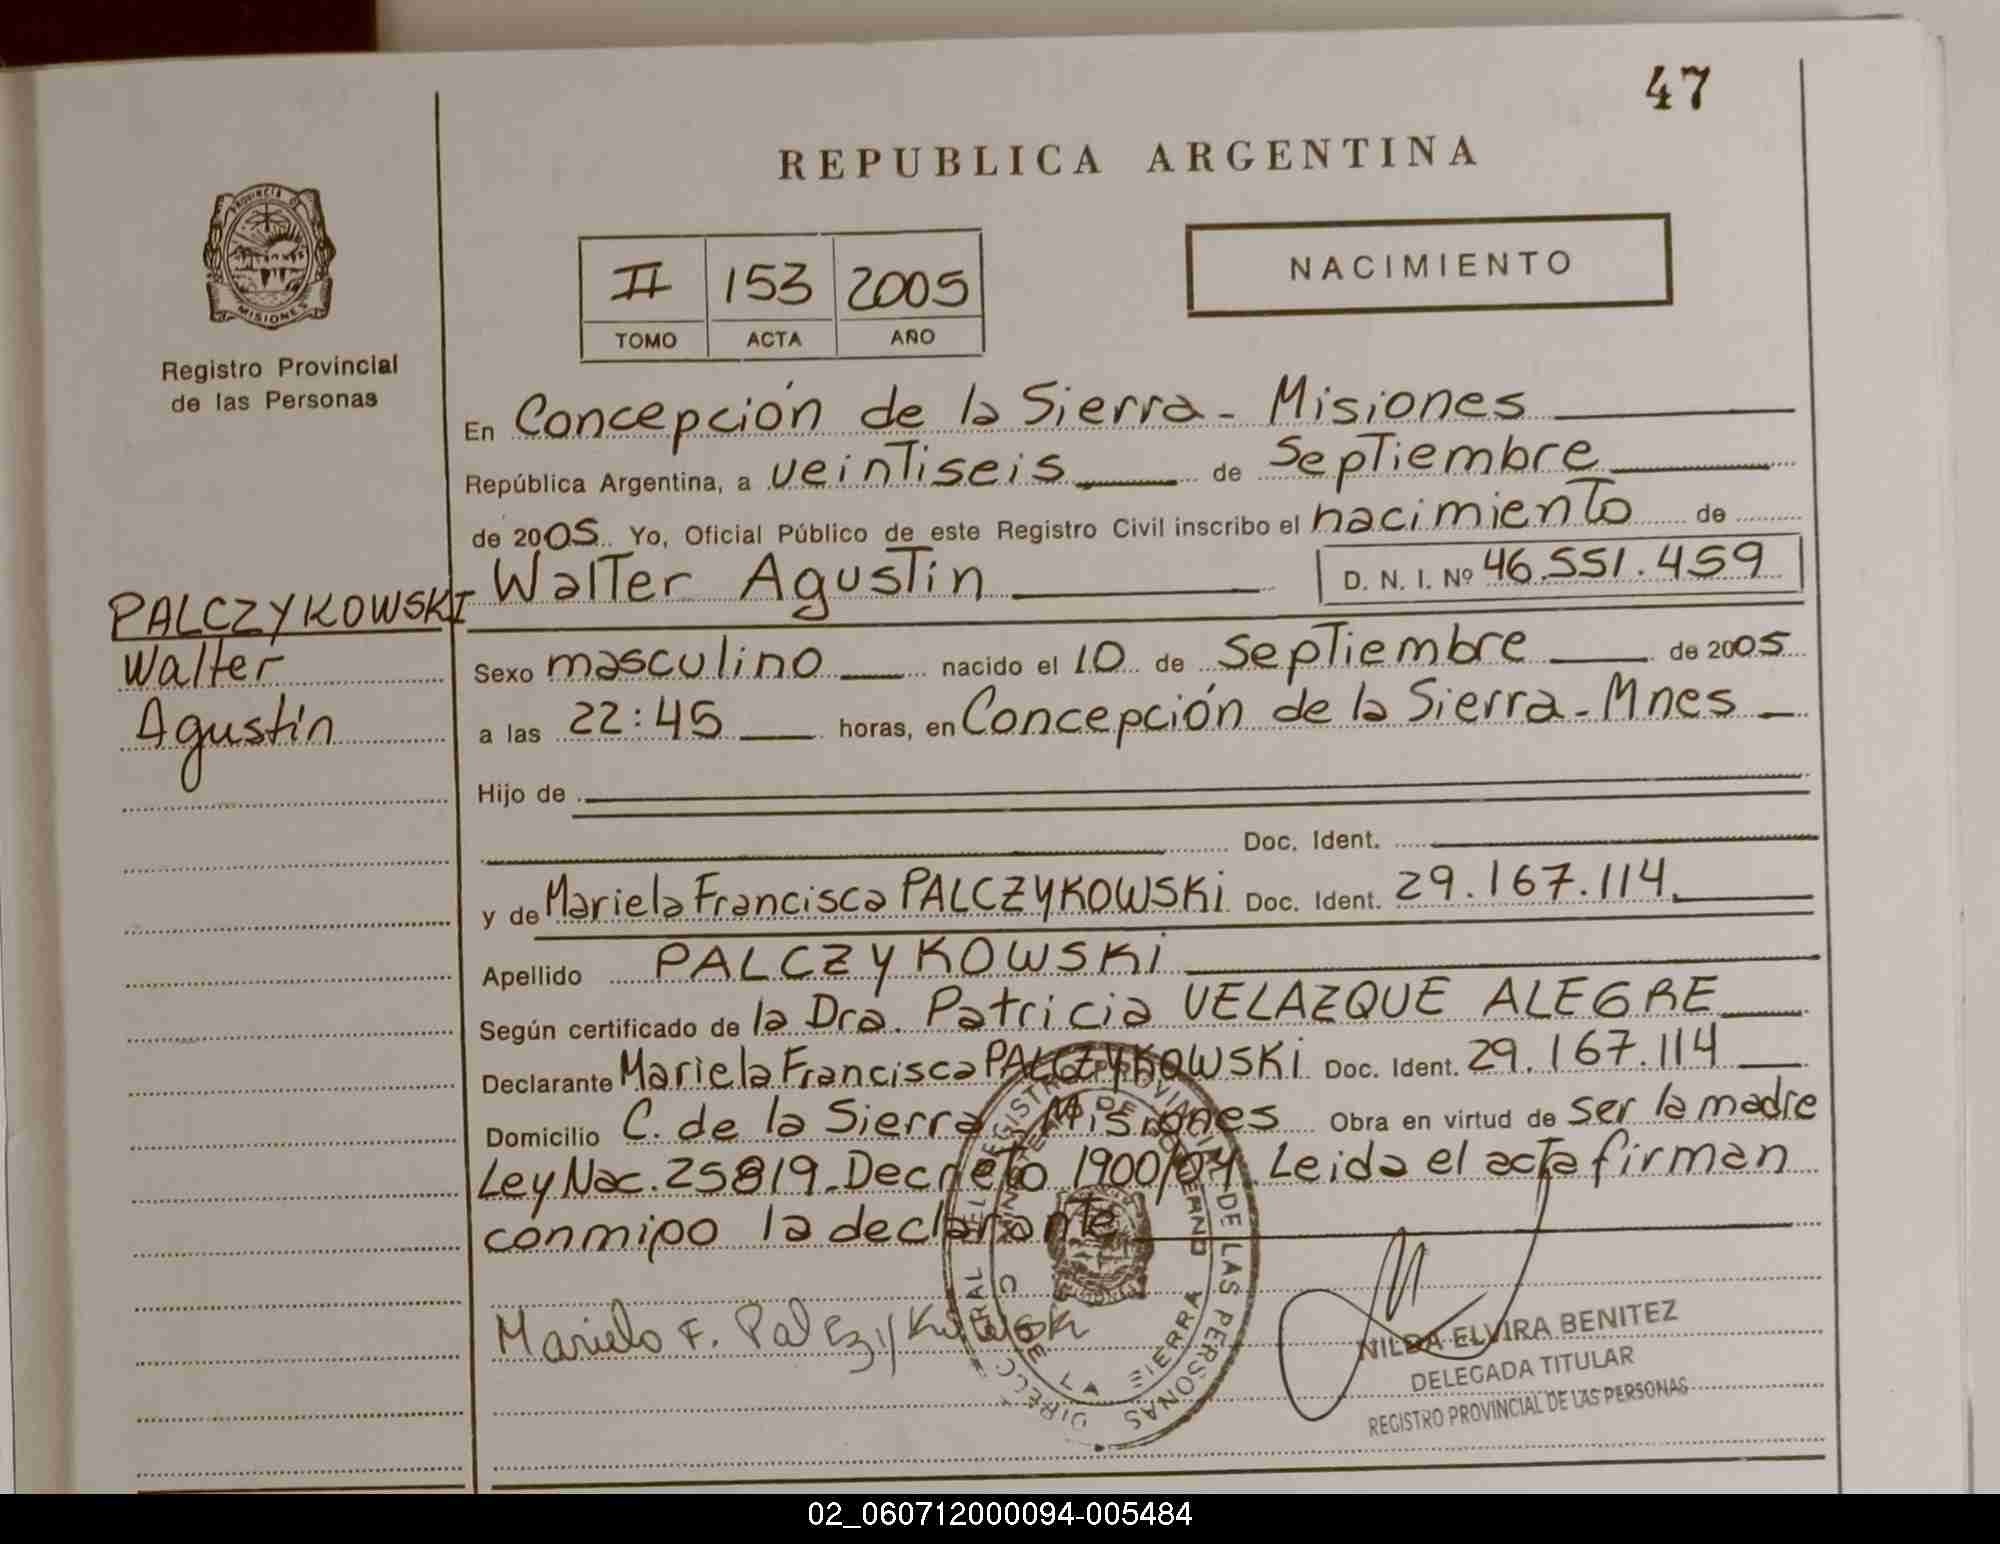 47
REPUBLICA ARGENTINA
PROVINCIA DE
MISIONES
Registro Provincial
de las Personas
II 153 2005
TOMO ACTA AÑO
NACIMIENTO
En Concepción de la Sierra - Misiones
República Argentina, a veintiseis de Septiembre
de 2005 Yo, Oficial Público de este Registro Civil inscribo el nacimiento de
Walter Agustin D. N. I. Nº 46.551.459
PALCZYKOWSKI
Walter
Agustin
Sexo masculino nacido el 10 de Septiembre de 2005
a las 22:45 horas, en Concepción de la Sierra - Mnes
Hijo de
Doc. Ident.
y de Mariela Francisca PALCZYKOWSKi Doc. Ident. 29.167.114
Apellido PALCZYKOWSKi
Según certificado de la Dra. Patricia VELAZQUE ALEGRE
Declarante Mariela Francisca PALCZYKOWSKi Doc. Ident. 29.167.114
Domicilio C. de la Sierra Misiones Obra en virtud de ser la madre
Ley Nac. 25819. Decreto 1900/04. Leida el acta firman
conmigo la declarante
Mariela F. Palczykowski
NILDA ELVIRA BENITEZ
DELEGADA TITULAR
REGISTRO PROVINCIAL DE LAS PERSONAS
02_060712000094-005484